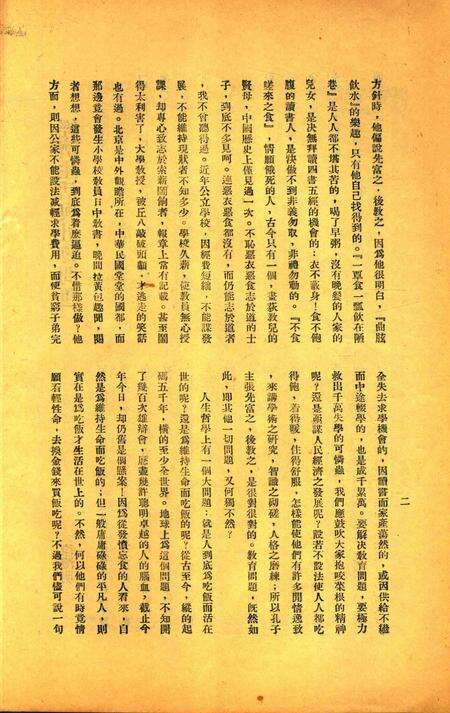 方針時，他偏說先富之，後教之，因爲他很明白，『曲肱
飲水』的樂趣，只有他自己找得到的。『一簞食一瓢飲在陋
巷』是人人都不堪其苦的，喝了早粥，沒有晚餐的人家的
兒女，是決無拜讀四書五經的機會的；衣不蔽身，食不飽
腹的讀書人，是狠做不到非義勿取，非禮勿動的。『不食
嗟來之食』，情願餓死的人，古今只有一個，畫荻教兒的
賢母，中國歷史上僅見過一次。不恥惡衣惡食志於道的士
子，到底不多見呵。連惡衣惡食都沒有，而仍能志於道者
，我不曾聽得過。近年公立學校，因經費短絀，不能謀發
展，不能維持現狀者不知多少。學校久薪，使教員無心授
課，却專心致志於索薪鬧餉者，報章上常有記載。甚至鬧
得太利害了，大學教授，被丘八敲破頭顱，才逃走的笑話
也有過。北京是中外觀瞻所在，中華民國堂堂的國都，而
那邊竟會發生小學校教員日中教書，晚間拉黃包趣聞，閱
者想想，這些可憐蟲，到底爲着麽逼迫。不惜那樣做？他
方面，則因公家不能設法減輕求學費用，而使貧窮子弟完
二
全失去求學機會的，因讀書而家產蕩然的，或因供給不繼
而中途輟學的，也是成千累萬。要解決教育問題，要極力
救出千萬失學的可憐蟲，我們應鼓吹大家抱咬菜根的精神
呢？還是須謀人民經濟之發展呢？設若不設法使人人都吃
得飽，着得暖，住得舒服，怎樣能使他們有許多閒情逸致
，來講學術之研究，智識之砌磋，人格之磨練；所以孔子
主張先富之，後教之，是很對很對的。教育問題，旣然如
此，卽其他一切問題，又何獨不然？
人生哲學上有一個大問題；就是人到底爲吃飯而活在
世的呢？還是爲維持生命而吃飯的呢？從古至今，縱的起
碼五千年，橫的至少全世界。地球上爲這個問題，不知開
了幾百次雄辯會，歷盡幾許聰明卓越的人的腦血，截止今
年今日，却仍舊是個懸案！因爲從發憤忘食的人看來，自
然是爲維持生命而吃飯的；但一般庸庸碌碌的平凡人，則
實在是爲吃飯才生活在世上的。不然，何以他們有時竟情
願石輕性命，去換金錢來買飯吃呢？不過我們儘可說一句